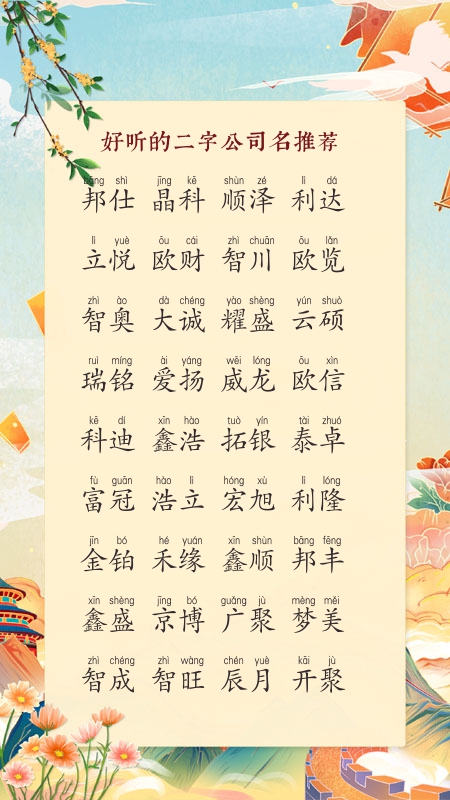 好听的二字公司名推荐
bāng shì jīng kē shùn zé lì dá
邦仕 晶科 顺泽 利达
lì yuè ōu cái zhì chuān ōu lǎn
立悦 欧财 智川 欧览
zhì ào dà chéng yào shèng yún shuò
智奥 大诚 耀盛 云硕
ruì míng ài yáng wēi lóng ōu xìn
瑞铭 爱扬 威龙 欧信
kē dí xīn hào tuò yín tài zhuó
科迪 鑫浩 拓银 泰卓
fù guān hào lì hóng xù lì lóng
富冠 浩立 宏旭 利隆
jīn bó hé yuán xīn shùn bāng fēng
金铂 禾缘 鑫顺 邦丰
xīn shèng jīng bó guǎng jù mèng měi
鑫盛 京博 广聚 梦美
zhì chéng zhì wàng chén yuè kāi jù
智成 智旺 辰月 开聚